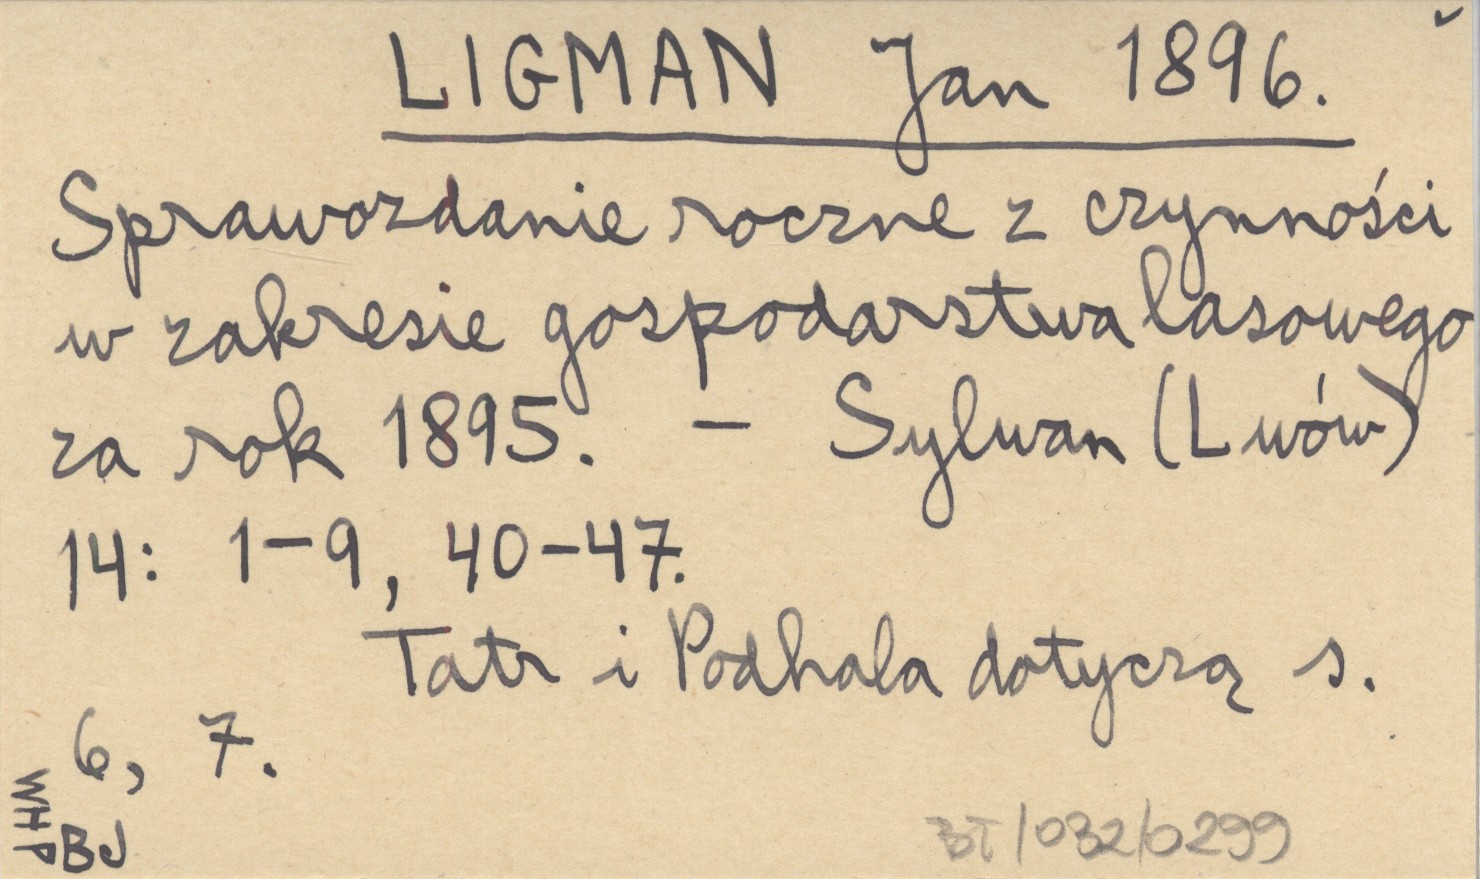 LIGMAN Jan 1896.
Sprawozdanie roczne z czynności
w zakresie gospodarstwa lasowego
za rok 1895. – Sylwan (Lwów)
14: 1–9, 40–47.
Tatr i Podhala dotyczą s.
6, 7.
WHP
BJ
BT/032/0299